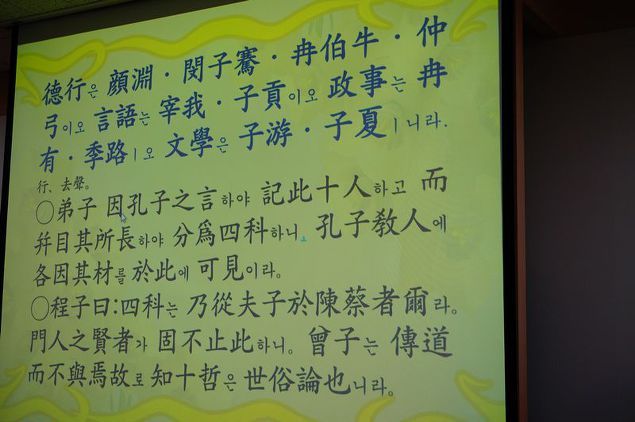 德行은 顔淵·閔子騫·冉伯牛·仲
弓이오 言語는 宰我·子貢이오 政事는 冉
有·季路ㅣ오 文學은 子游·子夏ㅣ니라.
行、去聲。
○弟子 因孔子之言하야 記此十人하고 而
幷目其所長하야 分爲四科하니 孔子敎人에
各因其材를 於此에 可見이라.
○程子曰:四科는 乃從夫子於陳蔡者爾라.
門人之賢者가 固不止此하니. 曾子는 傳道
而不與焉故로 知十哲은 世俗論也니라.